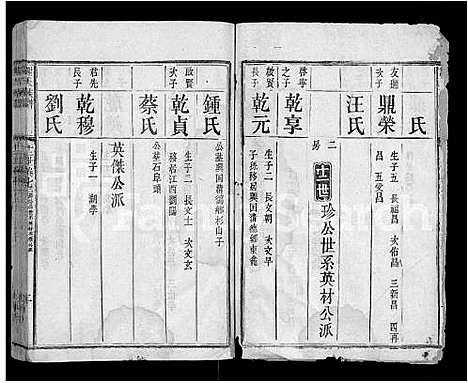 氏
友珊
次子
鼎榮
生子五 長福昌 次佑昌 三新昌 四再
昌 五愛昌
汪氏
二房
十一世
珍公世系英材公派
啓寧
之子
乾享
生子二 長文朝 次文早
啟賢
長子
乾元
子孫移居興國清德鄉東龕
鍾氏
公墓興國清德鄉杉山子
啟賢
次子
乾貞
生子二 長文士 次文玄
移居江西瀏陽
蔡氏
公墓石阜頭
英傑公派
君先
長子
乾穆
生子一 朝孝
劉氏